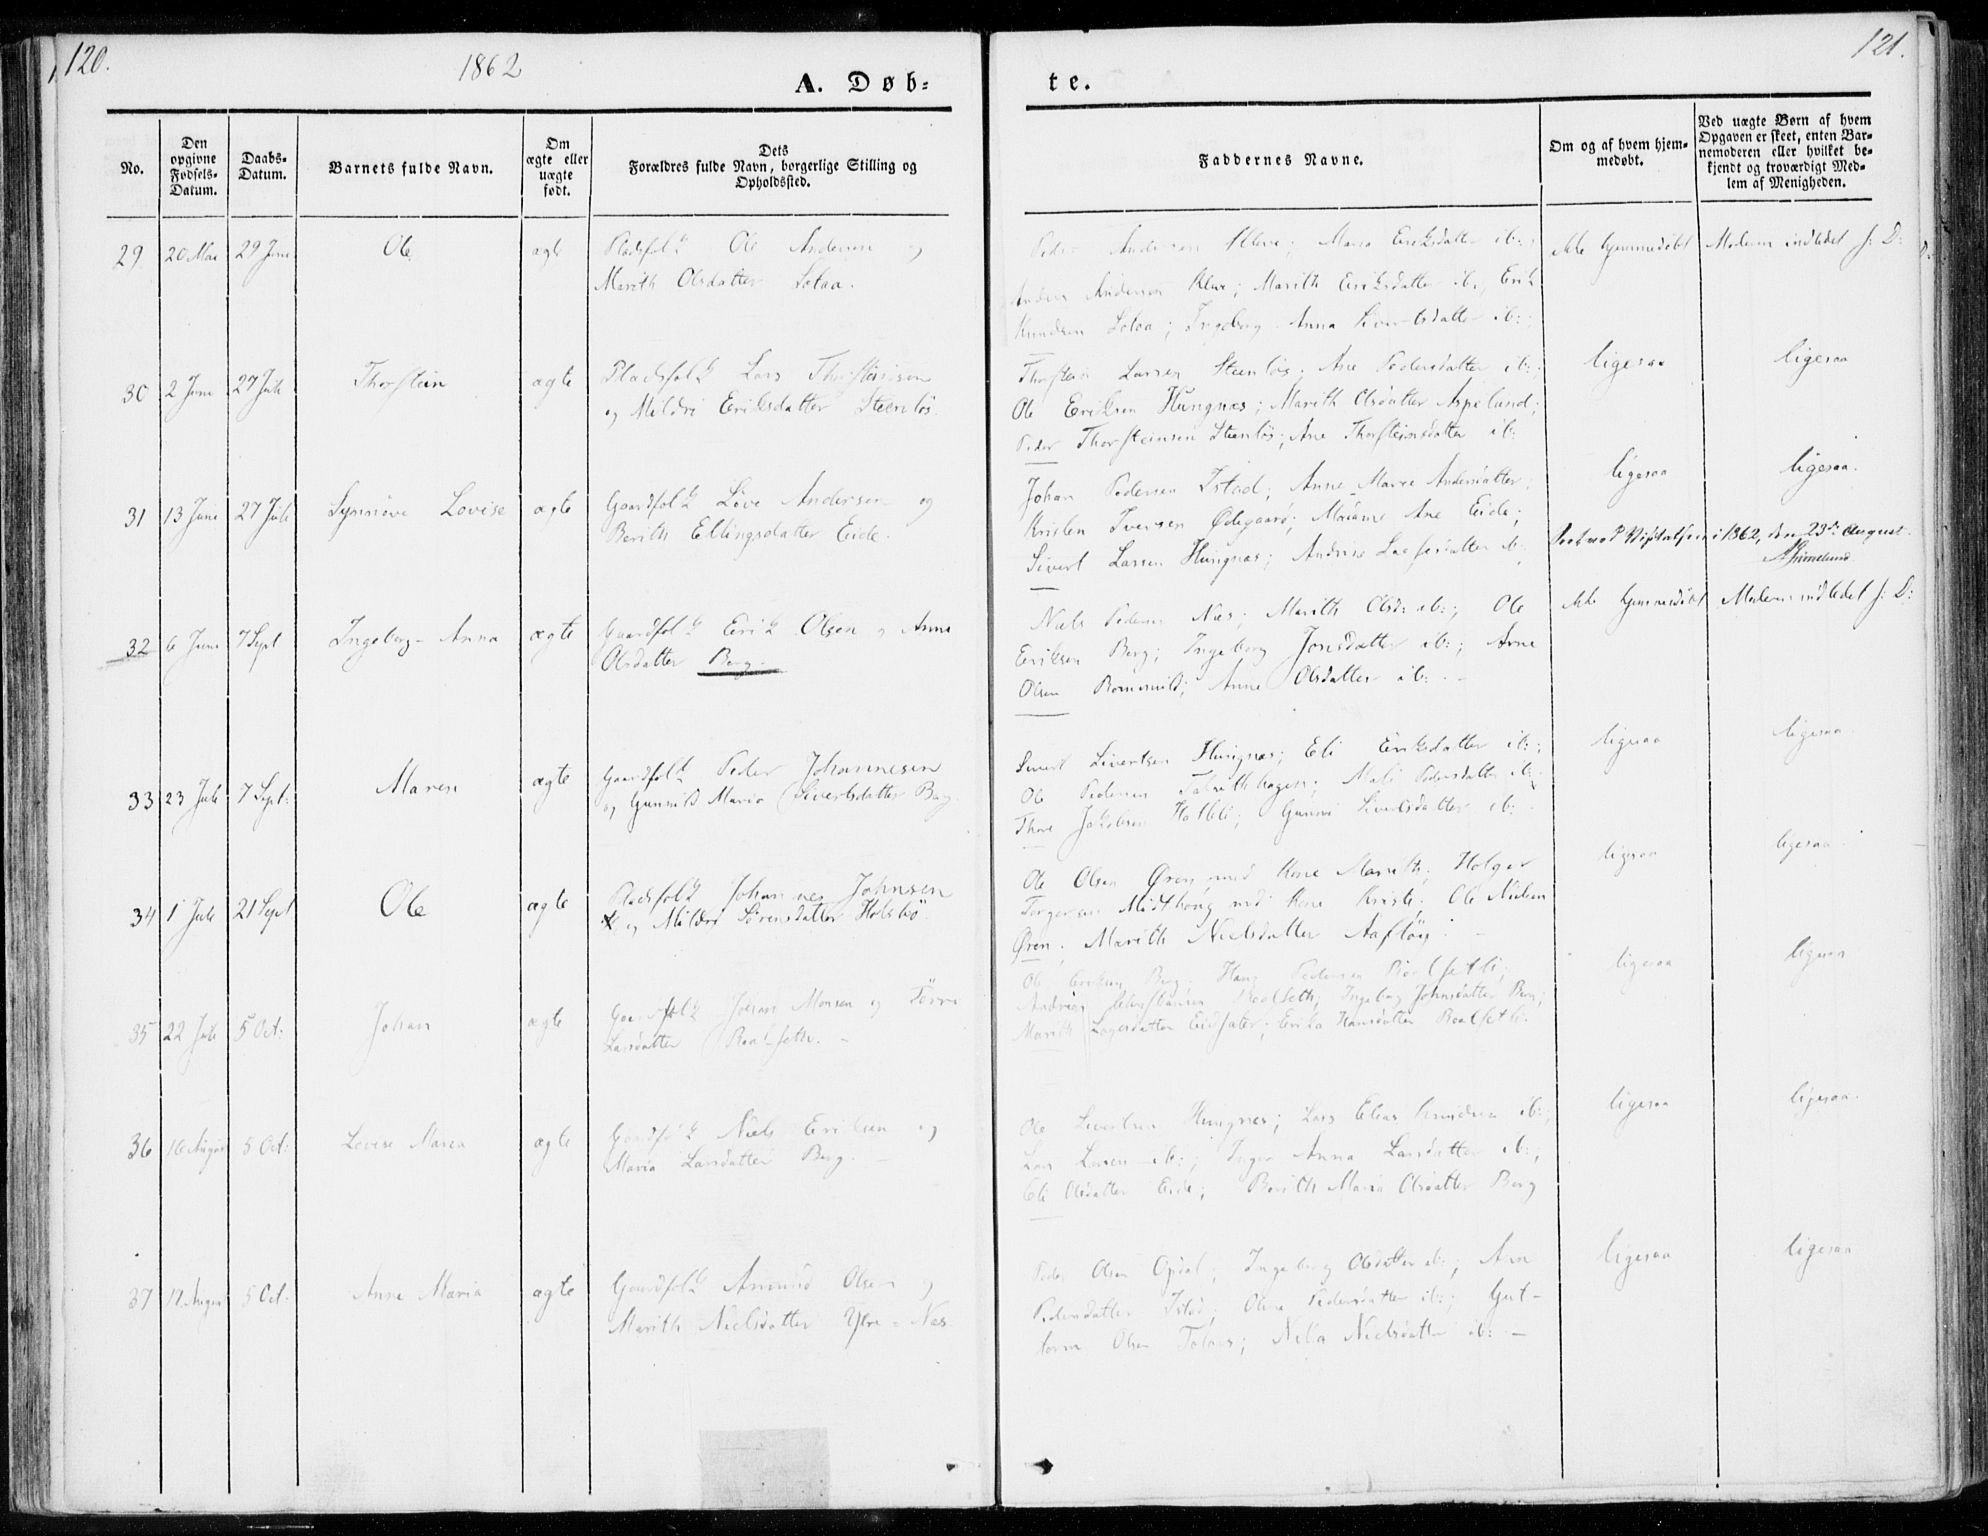 120.
1862
A. Døb=
te.
121.
No.
Den opgivne Fødsels-Datum.
Daabs-Datum.
Barnets fulde Navn.
Om ægte eller uægte født.
Dets Forældres fulde Navn, borgerlige Stilling og Opholdssted.
Faddernes Navne.
Om og af hvem hjemmedøbt.
Ved uægte Børn af hvem Opgaven er skeet, enten Barnemoderen eller hvilket bekjendt og troværdigt Medlem af Menigheden.
29 20 Mai 29 Juni Ole ægte Pladsfolk Ole Andersen og
Marith Olsdatter Solaa.
Peder Andersen Kleve; Maria Eriksdatter ib:;
Anders Andersen Kleve; Marith Eriksdatter ib; Erik
Knudsen Solaa; Ingeborg Anna Sivertsdatter ib:;
ikke hjemmedøbt
Moderen indledet s: D:
30 2 Juni 27 Juli Thorstein ægte Pladsfolk Lars Thorsteinsen
og Mildri Eriksdatter Steenløs.
Thorstein Larsen Steenløs; Ane Pedersdatter ib:;
Ole Eriksen Hungnæs; Marith Olsdatter Aspelund;
Peder Thorsteinsen Steenløs; Ane Thorsteinsdatter ib:
ligesaa
ligesaa
31 13 Juni 27 Juli Synnøve Lovise ægte Gaardfolk Löve Andersen og
Berith Ellingsdatter Eide.
Johan Pedersen Istad; Anne Marie Andersdatter;
Kristen Iversen Ødegaard; Ane Eide;
Sivert Larsen Hungnæs; ib.
ligesaa
ligesaa.
Seet ved Visitatsen i 1862, den 23de August.
32 6 Juni 7 Sept Ingeborg Anna ægte Gaardfolk Erik Olsen og Anne
Olsdatter Berg.
Niels Pedersen Næs; Marith Olsd: ib:; Ole
Eriksen Berg; Ingeborg Jonsdatter ib:; Arne
Olsen; Anne Olsdatter ib:
ikke hjemmedøbt
Moderen indledet s: D:
33 23 Juli 7 Sept: Maren ægte Gaardfolk Peder Johannesen
og Gunnild Maria Sivertsdatter Berg
Sivert Sivertsen Hungnæs; Eli Eriksdatter ib:;
Ole Pedersen; Mali Pedersdatter ib:;
Thore Jakobsen Hatleli; Sivertsdatter ib:
ligesaa
ligesaa
34 1 Juli 21 Sept Ole ægte Pladsfolk Johannes Johnsen
og Mildri Sörensdatter Holsbö.
Ole Olsen Øren med Kone Marith; Holger
Torgersen Midthoug med Kone Kristi; Ole Nielsen
Øren; Marith Nielsdatter
ligesaa
ligesaa
35 22 Juli 5 Oct: Johan ægte Gaardfolk Johan Monsen og
Larsdatter Roalseth.
Ole Eriksen Berg; Hans Pedersen Roalsetli;
Roalseth; Ingeborg Johnsdatter Berg;
Marith Eidsæter; Erika Hansdatter Roalsetli.
ligesaa
ligesaa
36 16 August 5 Oct: Lovise Maria ægte Gaardfolk Niels Eriksen og
Maria Larsdatter Berg.
Ole Sivertsen Hungnæs; Lars Elias Knudsen ib:;
Lars Larsen ib:; Inger Anna Larsdatter ib:;
Eli Olsdatter Eide; Berith Maria Olsdatter Berg
ligesaa
ligesaa.
37 17 August 5 Oct: Anne Maria ægte Gaardfolk Amund Olsen og
Marith Nielsdatter Ytre-Næs.
Peder Olsen Opdal; Ingeborg Olsdatter ib:; Ane
Pedersdatter Istad; Olene Pedersdatter ib:; Gut-
torm Olsen; Nielsdatter ib:
ligesaa
ligesaa